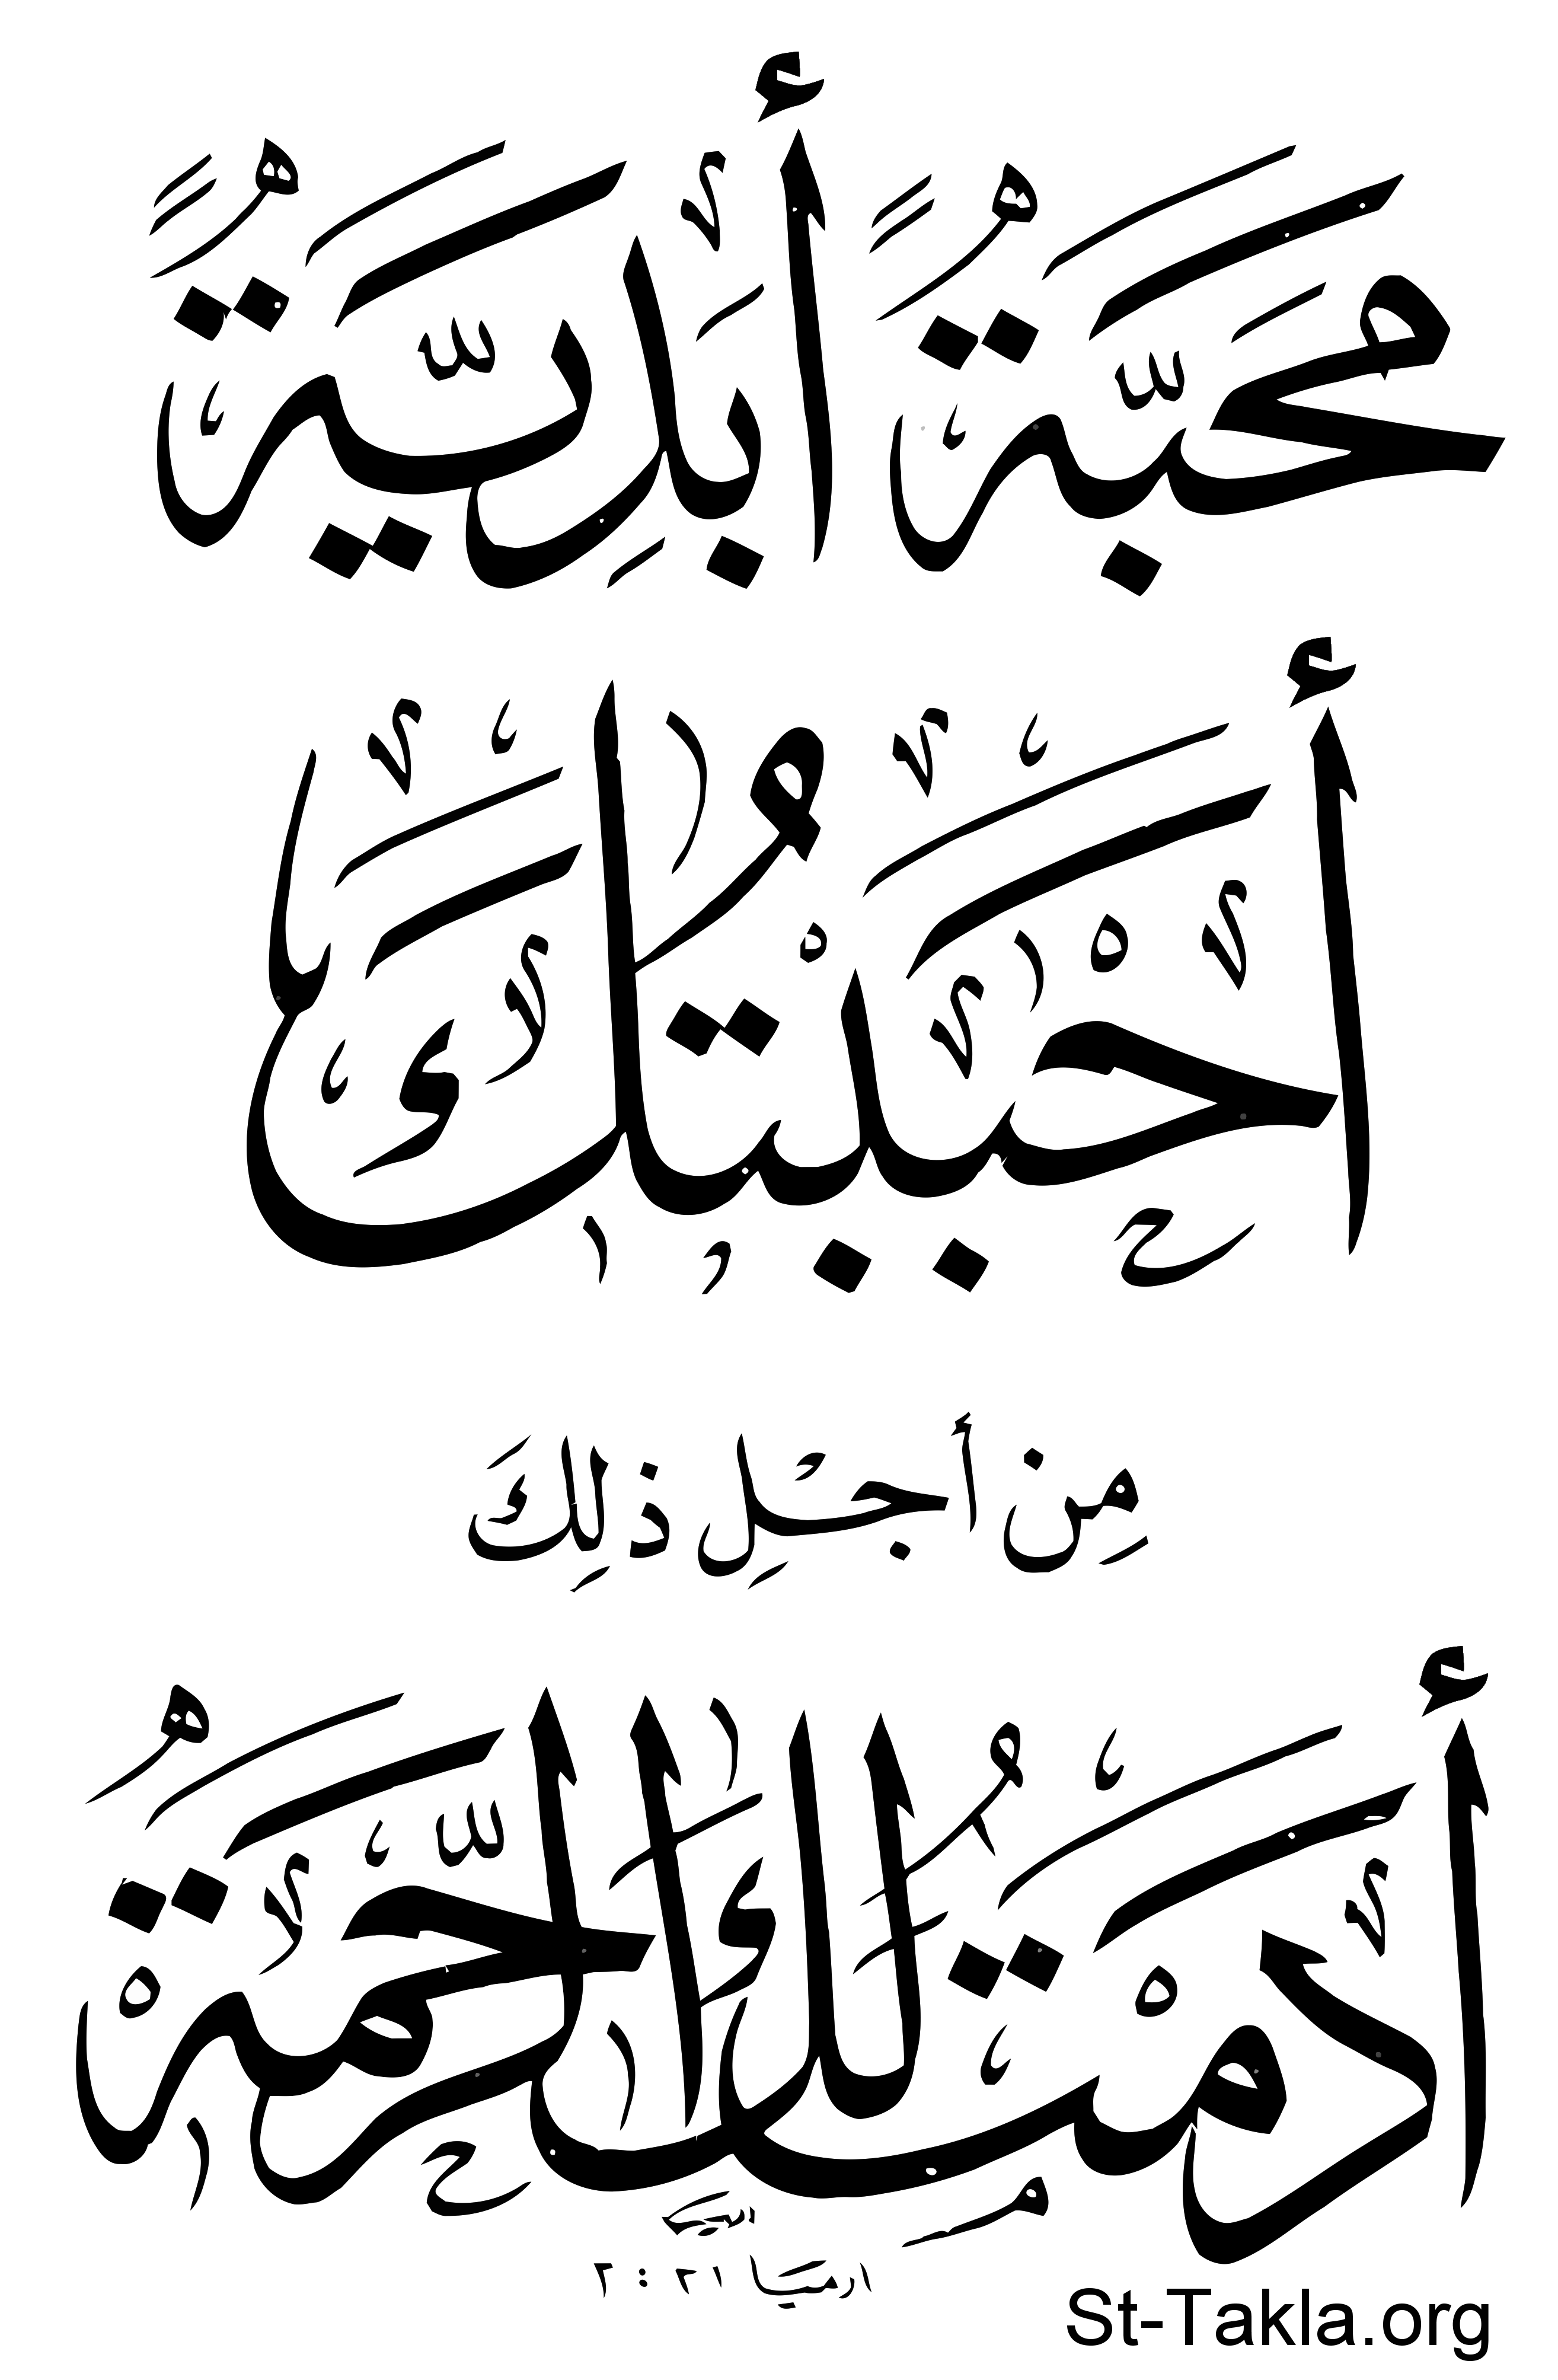 مَحَبَّةً أَبَدِيَّةً
أَحْبَبْتُكَ
مِن أَجْلِ ذلِكَ
أَدَمْتُ لَكَ الرَّحْمَةَ
ارميا ٣١ : ٣
St-Takla.org